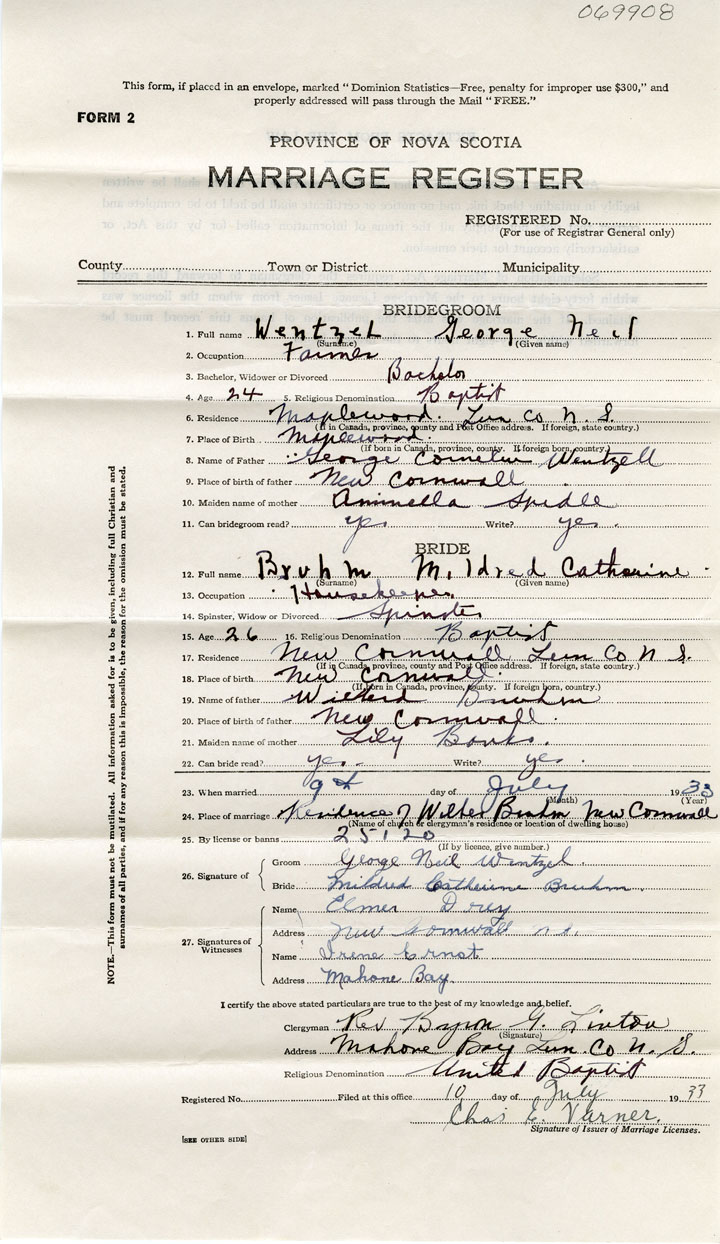 069908
This form, if placed in an envelope, marked “Dominion Statistics—Free, penalty for improper use $300,” and
properly addressed will pass through the Mail “FREE.”
FORM 2
PROVINCE OF NOVA SCOTIA
MARRIAGE REGISTER
REGISTERED No.
(For use of Registrar General only)
County Town or District Municipality
BRIDEGROOM
1. Full name Wentzel George Neil
(Surname) (Given name)
2. Occupation Farmer
3. Bachelor, Widower or Divorced Bachelor
4. Age 24 5. Religious Denomination Baptist
6. Residence Maplewood. Lun Co N. S.
(If in Canada, province, county and Post Office address. If foreign, state country.)
7. Place of Birth Maplewood.
(If born in Canada, province, county. If foreign born, country.)
8. Name of Father George Cornelius Wentzell
9. Place of birth of father New Cornwall
10. Maiden name of mother Aminella Spidle
11. Can bridegroom read? yes. Write? yes.
BRIDE
12. Full name Bruhm Mildred Catherine
(Surname) (Given name)
13. Occupation Housekeeper
14. Spinster, Widow or Divorced Spinster
15. Age 26 16. Religious Denomination Baptist
17. Residence New Cornwall Lun Co N S.
(If in Canada, province, county and Post Office address. If foreign, state country.)
18. Place of birth New Cornwall.
(If born in Canada, province, county. If foreign born, country.)
19. Name of father Bruhm
20. Place of birth of father New Cornwall.
21. Maiden name of mother Lily Banks.
22. Can bride read? yes. Write? yes.
23. When married 9th day of July 1933
(Month) (Year)
24. Place of marriage Residence of Bruhm New Cornwall
(Name of church or clergyman's residence or location of dwelling house)
25. By license or banns 25120
(If by licence, give number.)
26. Signature of
Groom George Neil Wentzel.
Bride Mildred Catherine Bruhm.
27. Signatures of Witnesses
Name Elmer
Address New Cornwall n.s.
Name Irene Ernst
Address Mahone Bay.
I certify the above stated particulars are true to the best of my knowledge and belief.
Clergyman Rev Byron G. Linton
(Signature)
Address Mahone Bay Lun. Co N. S.
Religious Denomination United Baptist
Registered No. Filed at this office 10 day of July 1933
Chas E. Varner.
Signature of Issuer of Marriage Licenses.
[SEE OTHER SIDE]
NOTE.—This form must not be mutilated. All information asked for is to be given, including full Christian and
surnames of all parties, and if for any reason this is impossible, the reason for the omission must be stated.